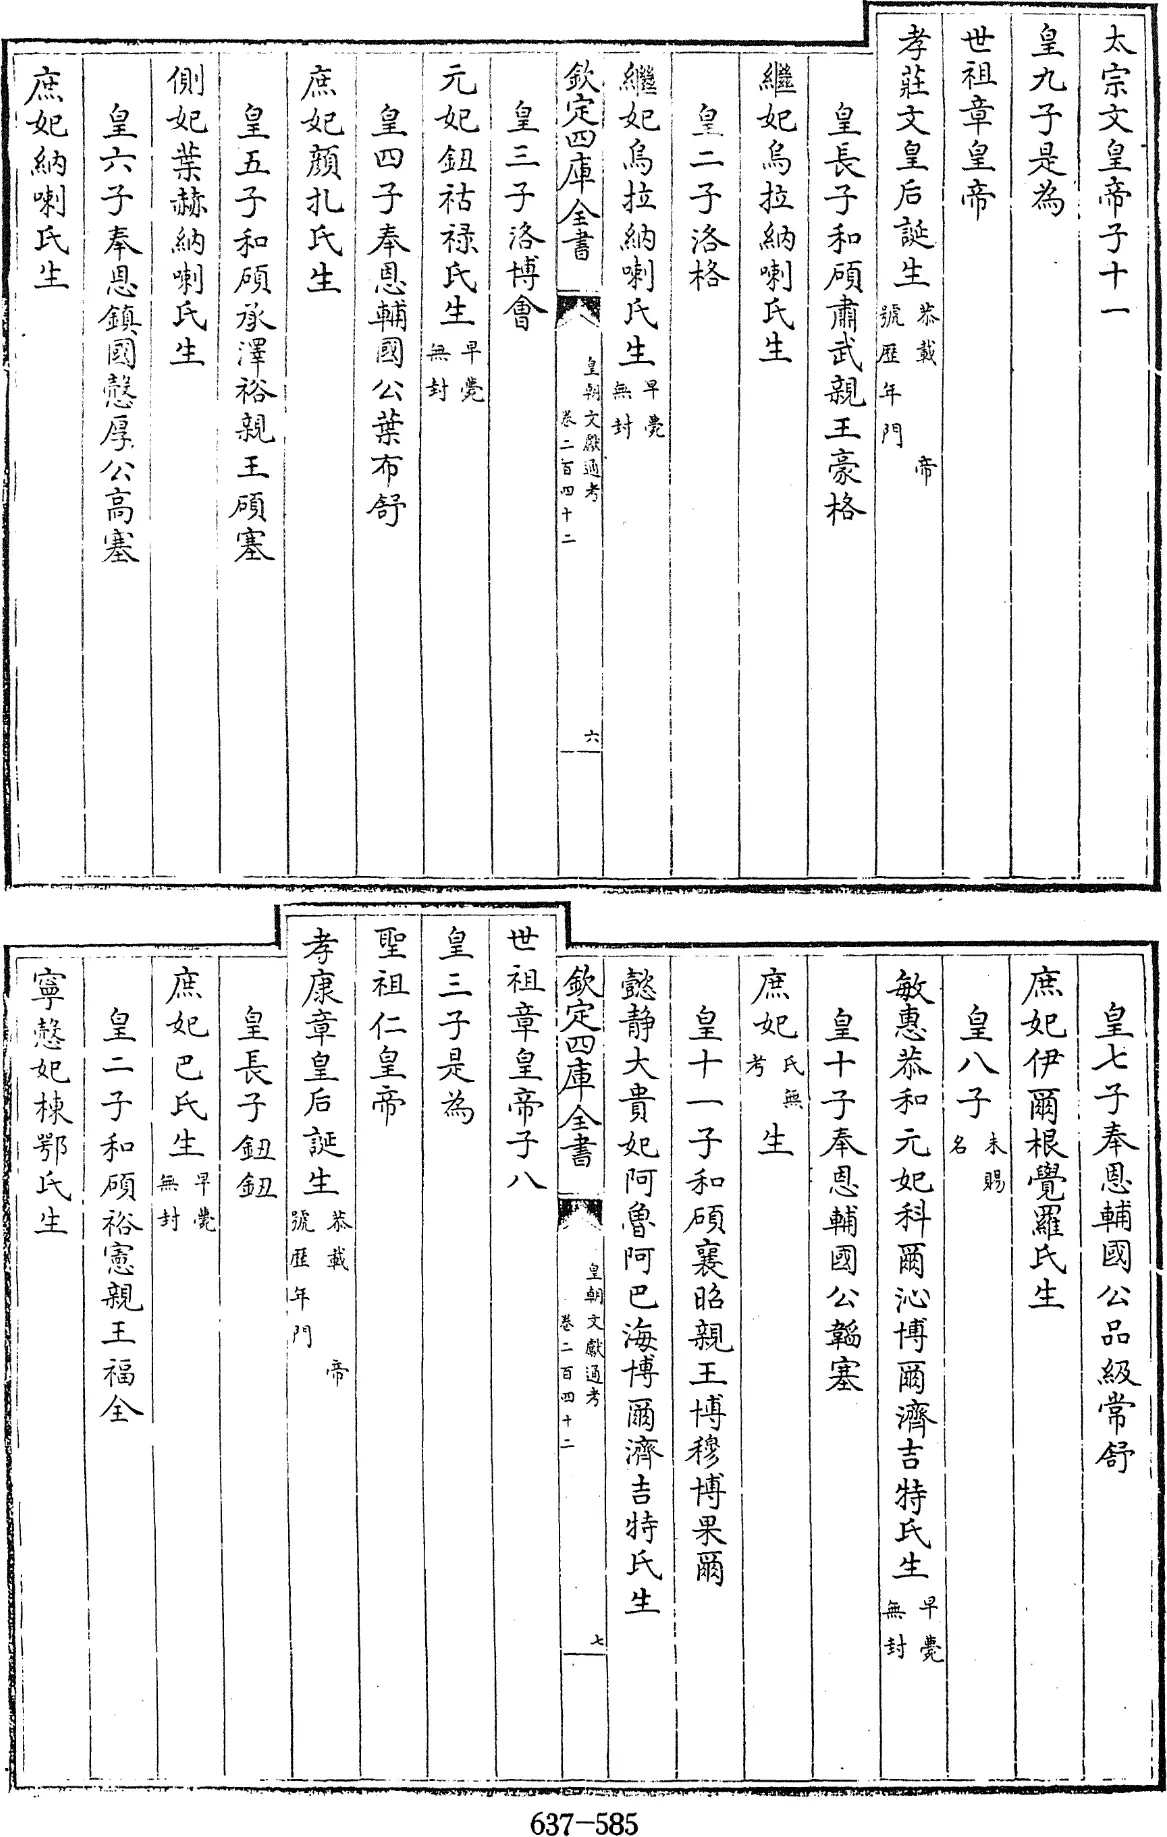 太宗文皇帝子十一
皇九子是為
世祖章皇帝
孝莊文皇后誕生恭載帝號歷年門
皇長子和碩肅武親王豪格
繼妃烏拉納喇氏生
皇二子洛格
繼妃烏拉納喇氏生早薨無封
欽定四庫全書 皇朝文獻通考卷二百四十二 六
皇三子洛博會
元妃鈕祜祿氏生早薨無封
皇四子奉恩輔國公葉布舒
庶妃顏扎氏生
皇五子和碩承澤裕親王碩塞
側妃葉赫納喇氏生
皇六子奉恩鎮國慤厚公高塞
庶妃納喇氏生
皇七子奉恩輔國公品級常舒
庶妃伊爾根覺羅氏生
皇八子未賜名
敏惠恭和元妃科爾沁博爾濟吉特氏生早薨無封
皇十子奉恩輔國公韜塞
庶妃氏無考生
皇十一子和碩襄昭親王博穆博果爾
懿靜大貴妃阿魯阿巴海博爾濟吉特氏生
欽定四庫全書 皇朝文獻通考卷二百四十二 七
世祖章皇帝子八
皇三子是為
聖祖仁皇帝
孝康章皇后誕生恭載帝號歷年門
皇長子鈕鈕
庶妃巴氏生早薨無封
皇二子和碩裕憲親王福全
寧慤妃棟鄂氏生
637-585